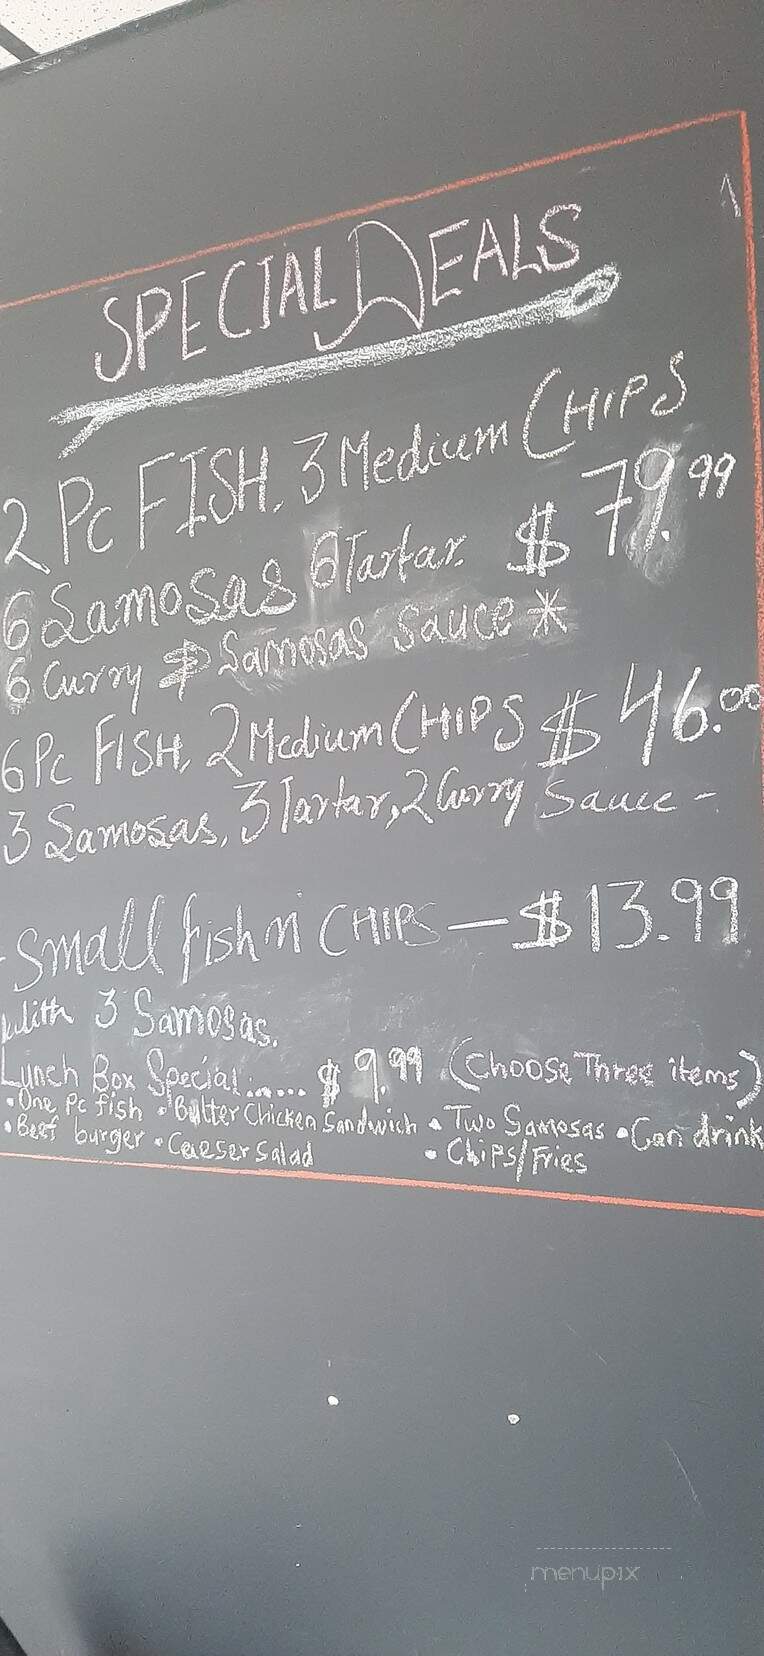 SPECIAL DEALS
2 Pc FISH, 3 Medium CHIPS
6 Samosas 6 Tartar. $ 79.99
6 Curry & Samosas Sauce *
6 Pc FISH, 2 Medium CHIPS $ 46.00
3 Samosas, 3 Tartar, 2 Curry Sauce -
Small fish n' CHIPS — $13.99
with 3 Samosas.
Lunch Box Special...... $ 9.99 (Choose Three items)
• One Pc fish • Butter Chicken Sandwich • Two Samosas • Can drink
• Beef burger • Caeser Salad • Chips/Fries
menupix